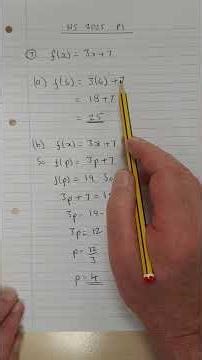 N5 2025 P1
⑦ f(x) = 3x + 7
(a) f(6) = 3(6) + 7
= 18 + 7
= 25
(b) f(x) = 3x + 7
So f(p) = 3p + 7
f(p) = 19 So
3p + 7 = 1
3p = 19 -
3p = 12
p = 12/3
p = 4